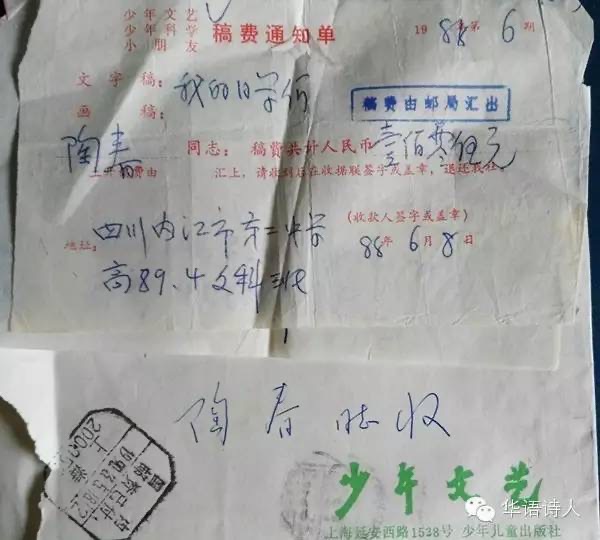 少年文艺
少年科学
小朋友
稿费通知单
1988年第6期
文字稿：我的同学们
画稿：
稿费由邮局汇出
陶春同志：稿费共计人民币壹佰零伍元
汇上，请收到后在收据联签字或盖章，退还我社
(收款人签字或盖章)
地址：四川内江市第二中学
88年6月8日
高89.4文科班
陶春 收
少年文艺
上海延安西路1538号 少年儿童出版社
华语诗人